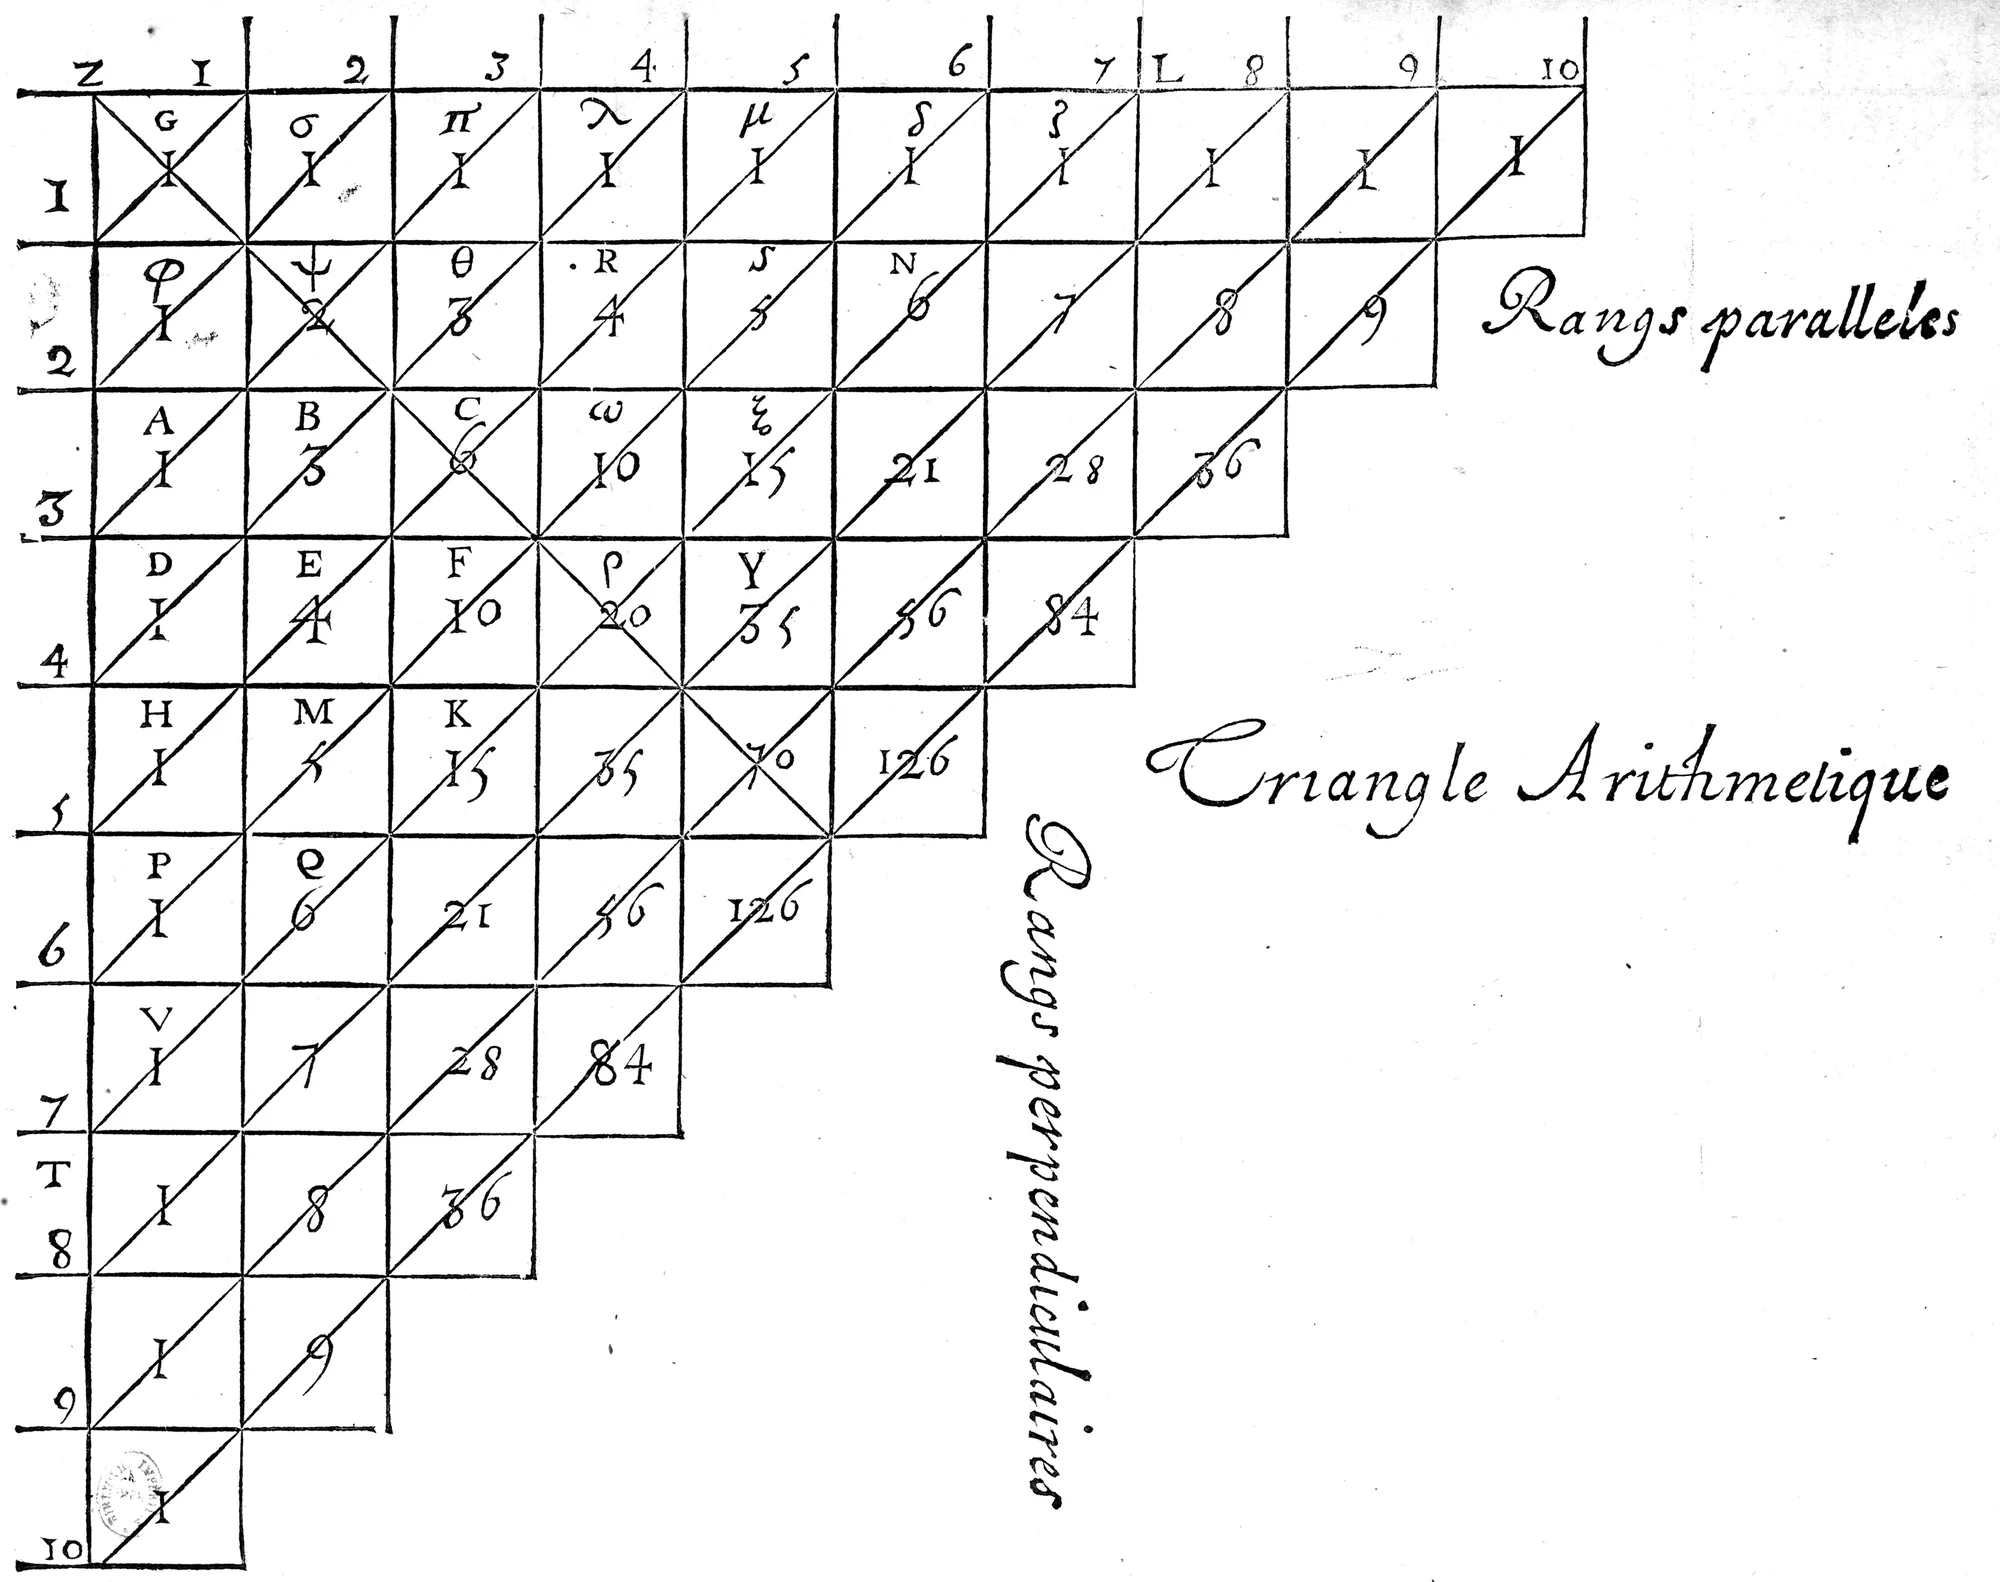 Z 1 2 3 4 5 6 7 L 8 9 10
G σ π λ μ δ ζ
1 1 1 1 1 1 1 1 1 1 1
φ ψ θ R S N
1 2 3 4 5 6 7 8 9
2
Rangs paralleles
A B C ω ξ
1 3 6 10 15 21 28 36
3
D E F ρ Y
1 4 10 20 35 56 84
4
H M K
1 5 15 35 70 126
5
Triangle Arithmetique
P Q
1 6 21 56 126
6
V
1 7 28 84
7
Rangs perpendiculaires
T
1 8 36
8
1 9
9
1
10